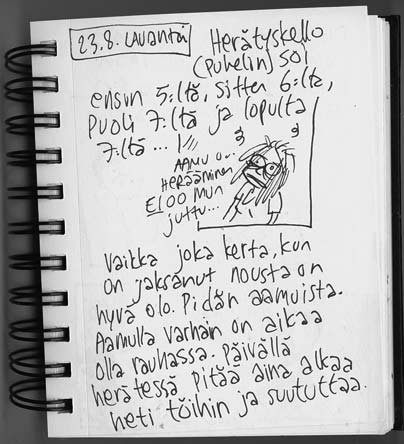 23.8. LAUANTAI
Herätyskello
(Puhelin) soi
ensin 5:ltä, sitten 6:lta,
Puoli 7:ltä ja lopulta
7:ltä ...
AAMU U...
HERÄÄMINEN
EI OO MUN
JUTTU...
Vaikka joka kerta, kun
on jaksanut nousta on
hyvä olo. Pidän aamuista.
Aamulla varhain on aikaa
olla rauhassa. Päivällä
herätessä pitää aina alkaa
heti töihin ja suututtaa.